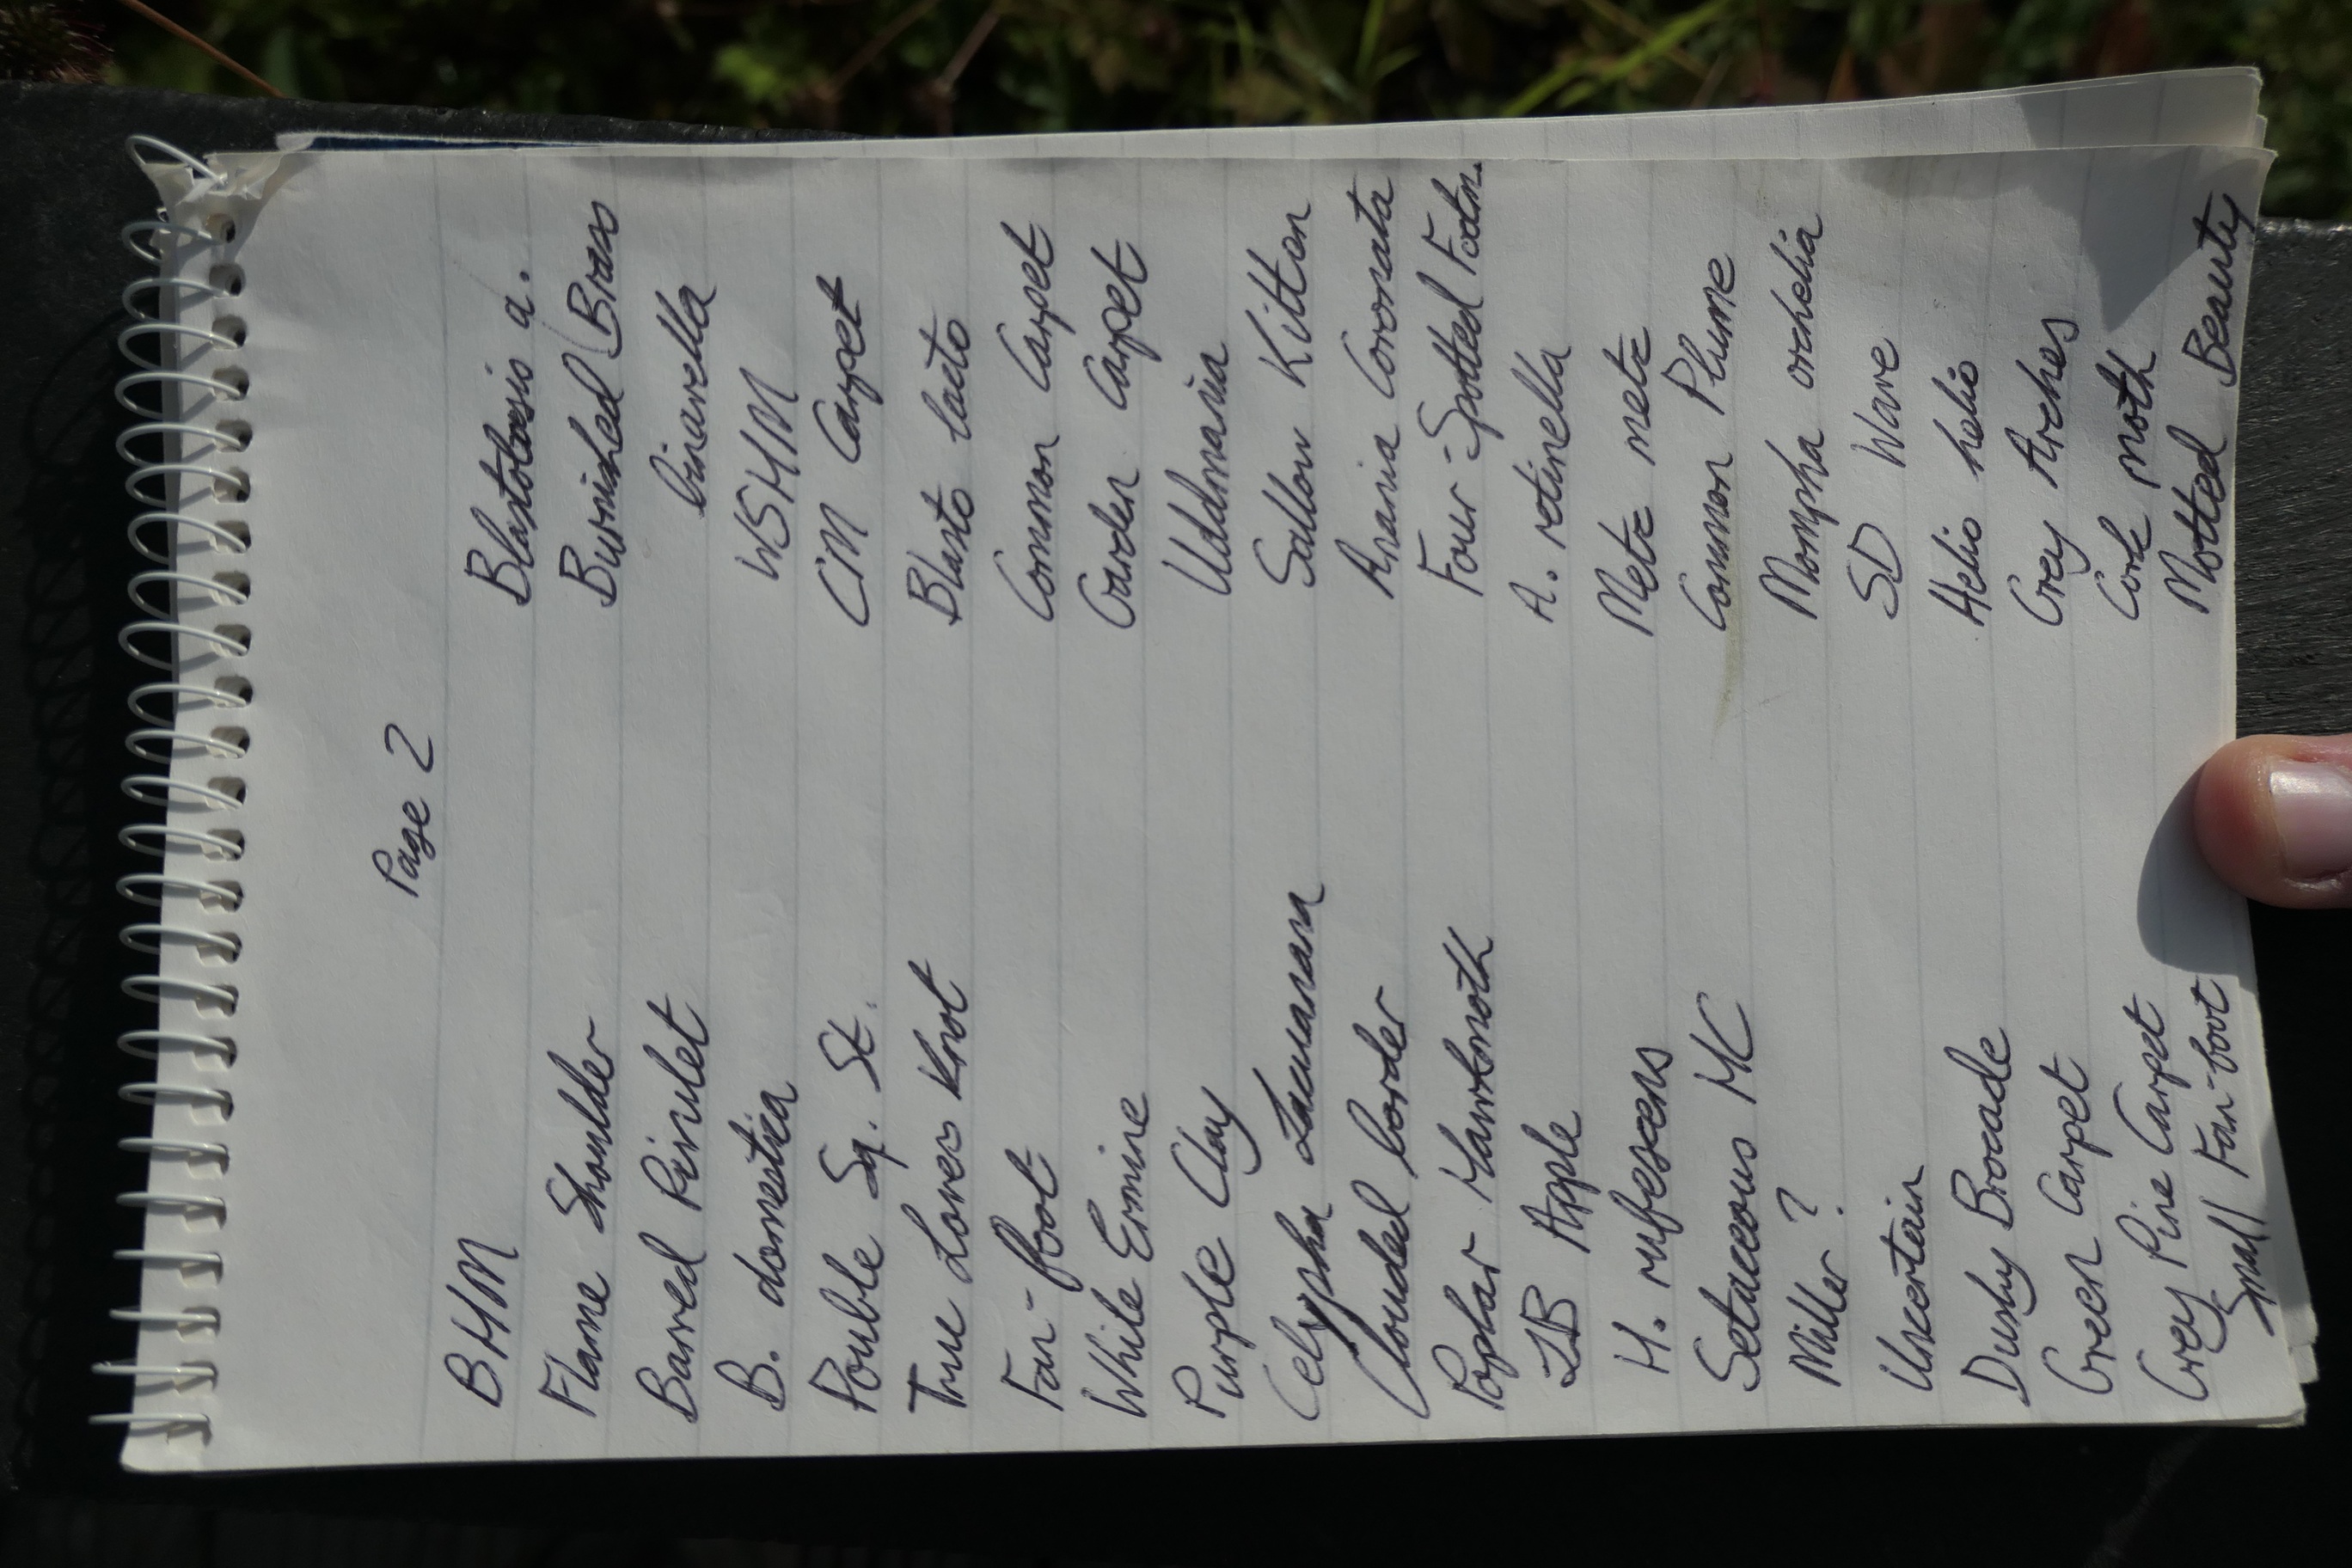 Page 2
BHM
Flame Shoulder
Barred Rivulet
B. domestica
Double Sq. St.
True Lovers Knot
Fan-foot
White Ermine
Purple Clay
Celypha Lacunana
Clouded border
Poplar Hawkmoth
LB Apple
H. rufescens
Setaceous HC
Miller?
Uncertain
Dusky Brocade
Green Carpet
Grey Pine Carpet
Small Fan-foot
Blastobasis a.
Burnished Brass
binavella
WSHM
CM Carpet
Blasto lacto
Common Carpet
Garden Carpet
Uddmania
Sallow Kitten
Anania Coronata
Four-Spotted Footn.
A. retinella
Metz metz
Common Plume
Mompha ochelia
SD Wave
Helio helio
Grey Arches
Cork moth
Mottled Beauty